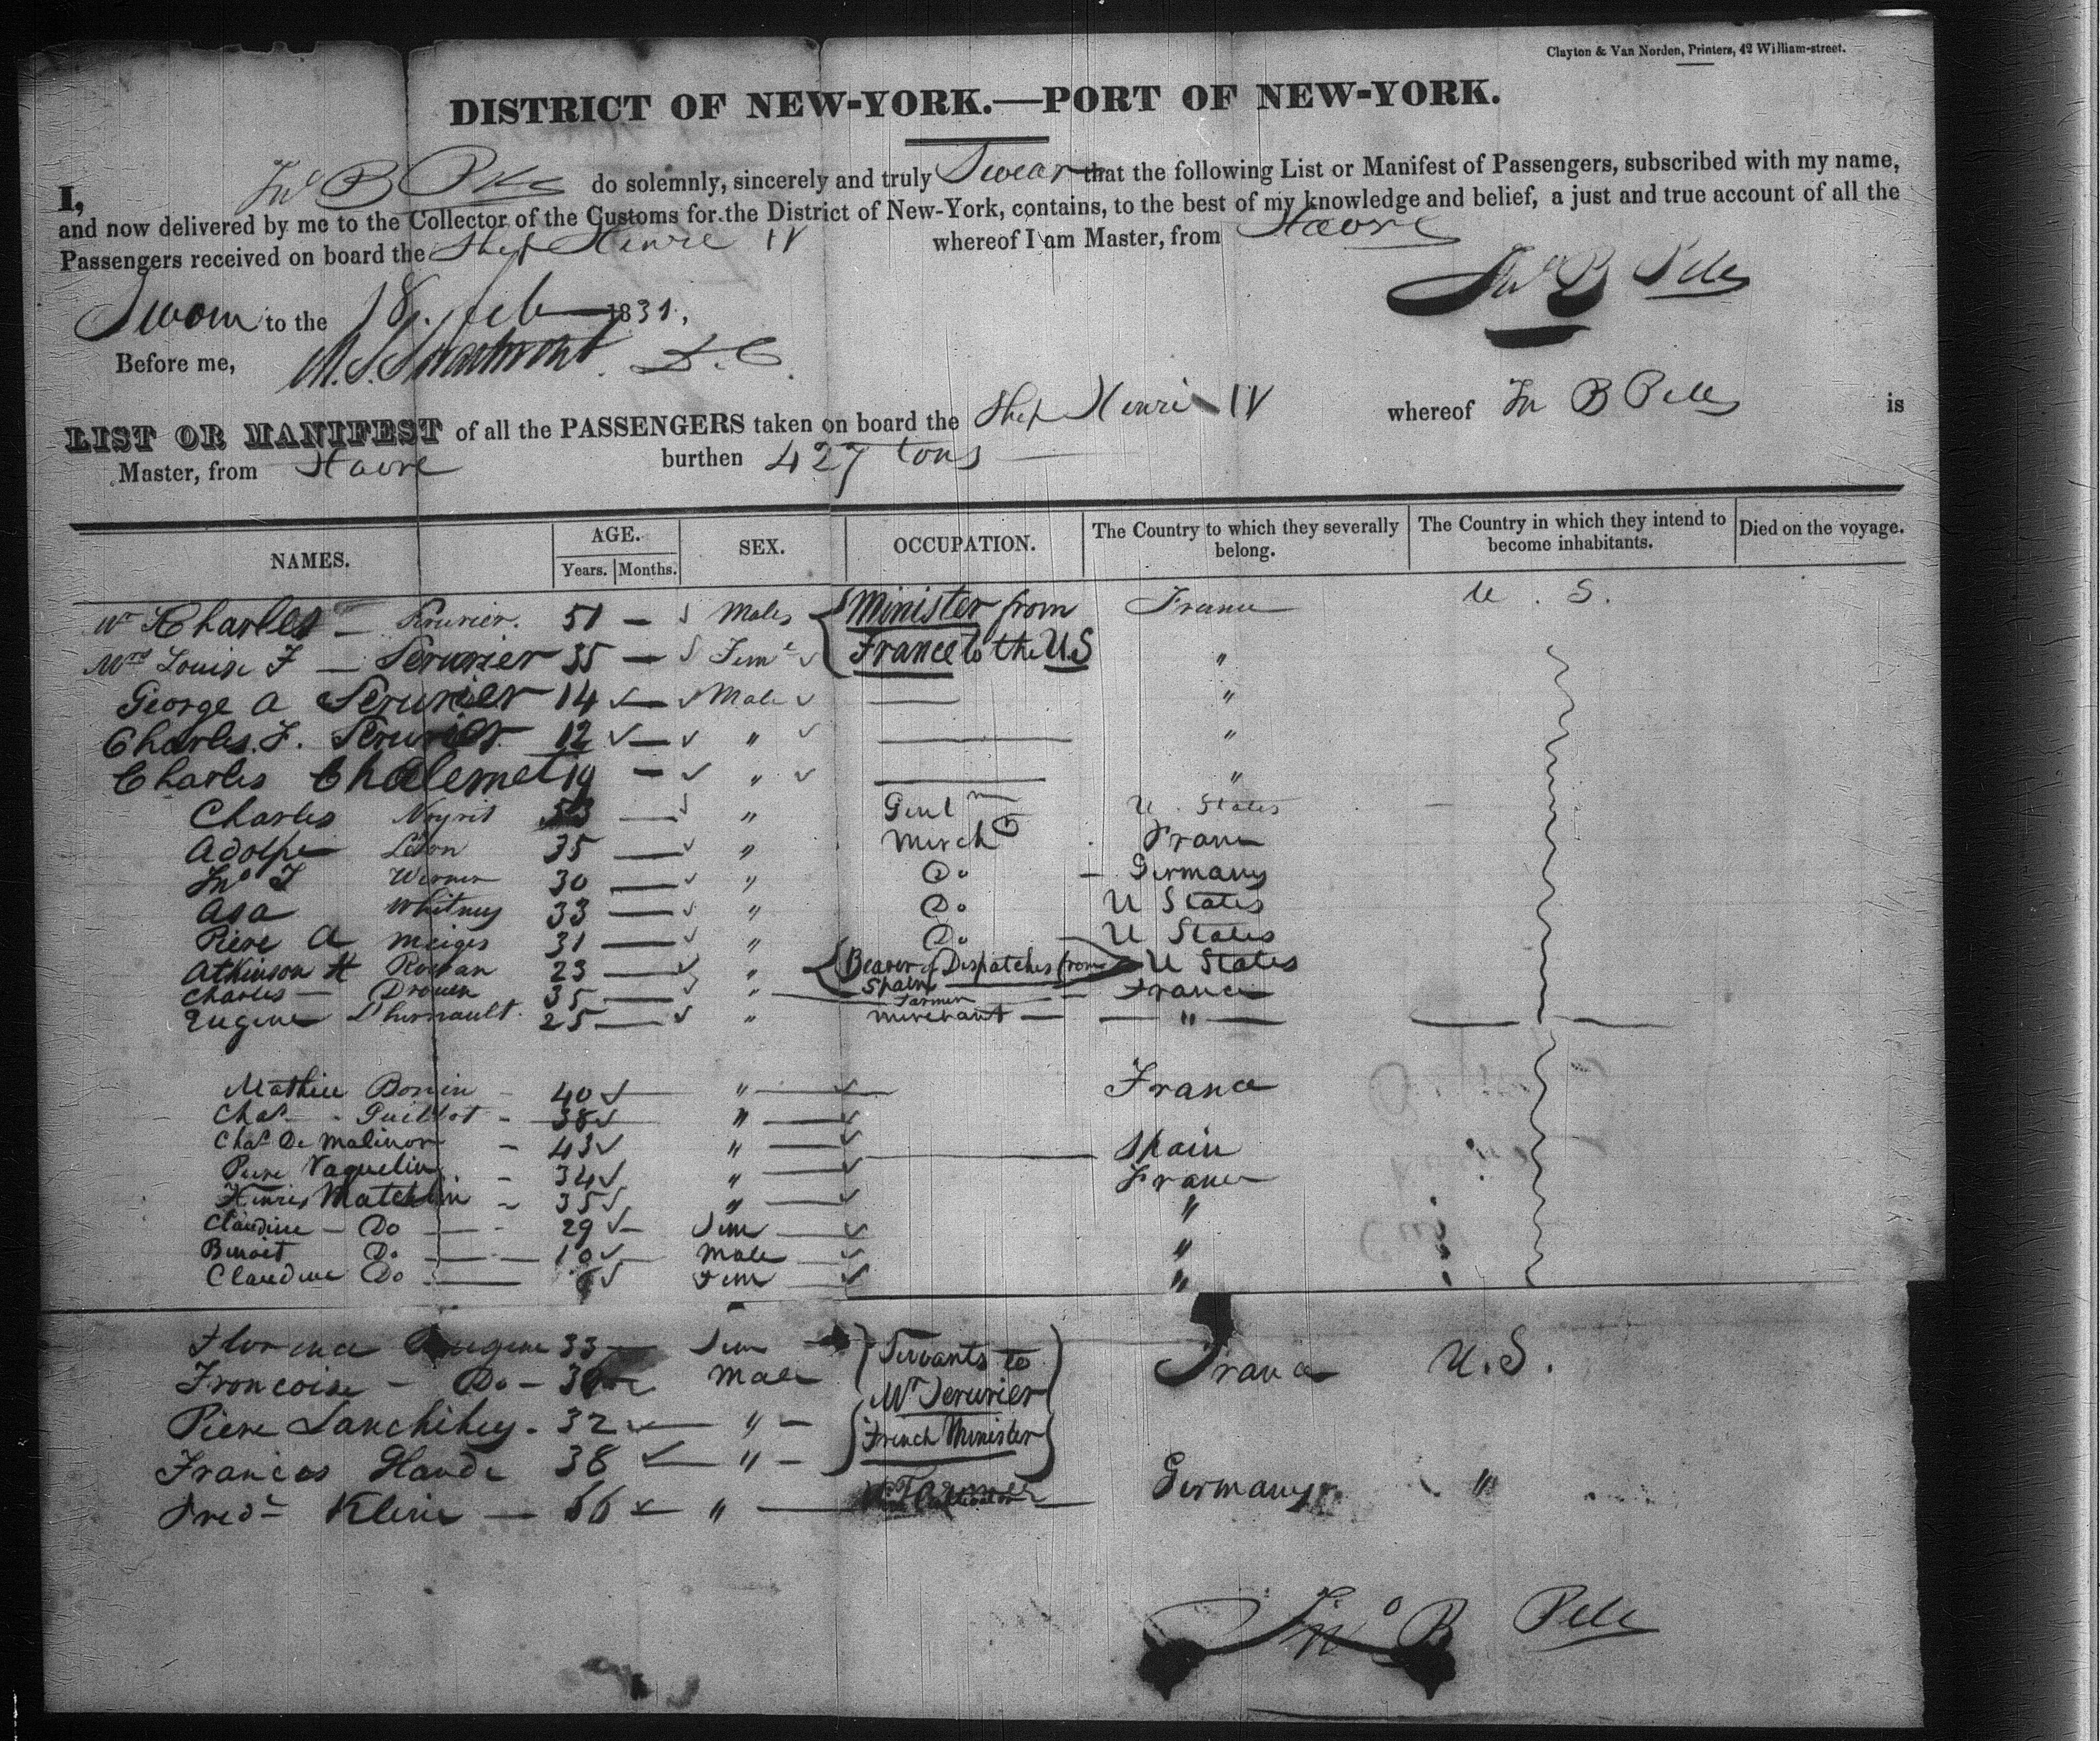 Clayton & Van Norden, Printers, 42 William-street.
DISTRICT OF NEW-YORK.—PORT OF NEW-YORK.
I, Jnº B Pell do solemnly, sincerely and truly Swear that the following List or Manifest of Passengers, subscribed with my name,
and now delivered by me to the Collector of the Customs for the District of New-York, contains, to the best of my knowledge and belief, a just and true account of all the
Passengers received on board the Ship Henri IV whereof I am Master, from Havre
Sworn to the 18. Feb 1831, Jnº B Pell
Before me, D. C.
LIST OR MANIFEST of all the PASSENGERS taken on board the Ship Henri IV whereof Jn B Pell is
Master, from Havre burthen 427 tons
NAMES. AGE. Years. Months. SEX. OCCUPATION. The Country to which they severally belong. The Country in which they intend to become inhabitants. Died on the voyage.
Mr Charles — Serurier. 51 — Males Minister from France U. S.
Mrs Louise F — Serurier 35 — Feme France to the U.S "
George A Serurier 14 — Male — "
Charles. F. Serurier 12 — " — "
Charles Chalemet 19 — " — "
Charles 53 — " Gentm U. States
Adolphe Leon 35 — " Mercht France
Jno Werner 30 — " Do Germany
Asa Whitney 33 — " Do U States
Piere A Meiges 31 — " Do U States
Atkinson H Rowan 23 — " Bearer of Dispatches from Spain U States
Charles — Drouen 35 — " Farmer France
Eugene 25 — " Merchant — "
Mathieu Bonin 40 " France
Chas Guillot 38 "
Chas De Malinor 43 " Spain
Piere Vaquelin 34 " France
Henrie Matchlin 35 " "
Claudine — Do 29 Fem
Benoit Do 10 Male "
Claudine Do Fem "
Florence Eugene 33 Fem Servants to France U.S.
Francoise — Do — Male Mr Serurier
Piere 32 " French Minister
Francois Hande 38 "
Fredk Kline — 66 " Germany "
Jnº B Pell